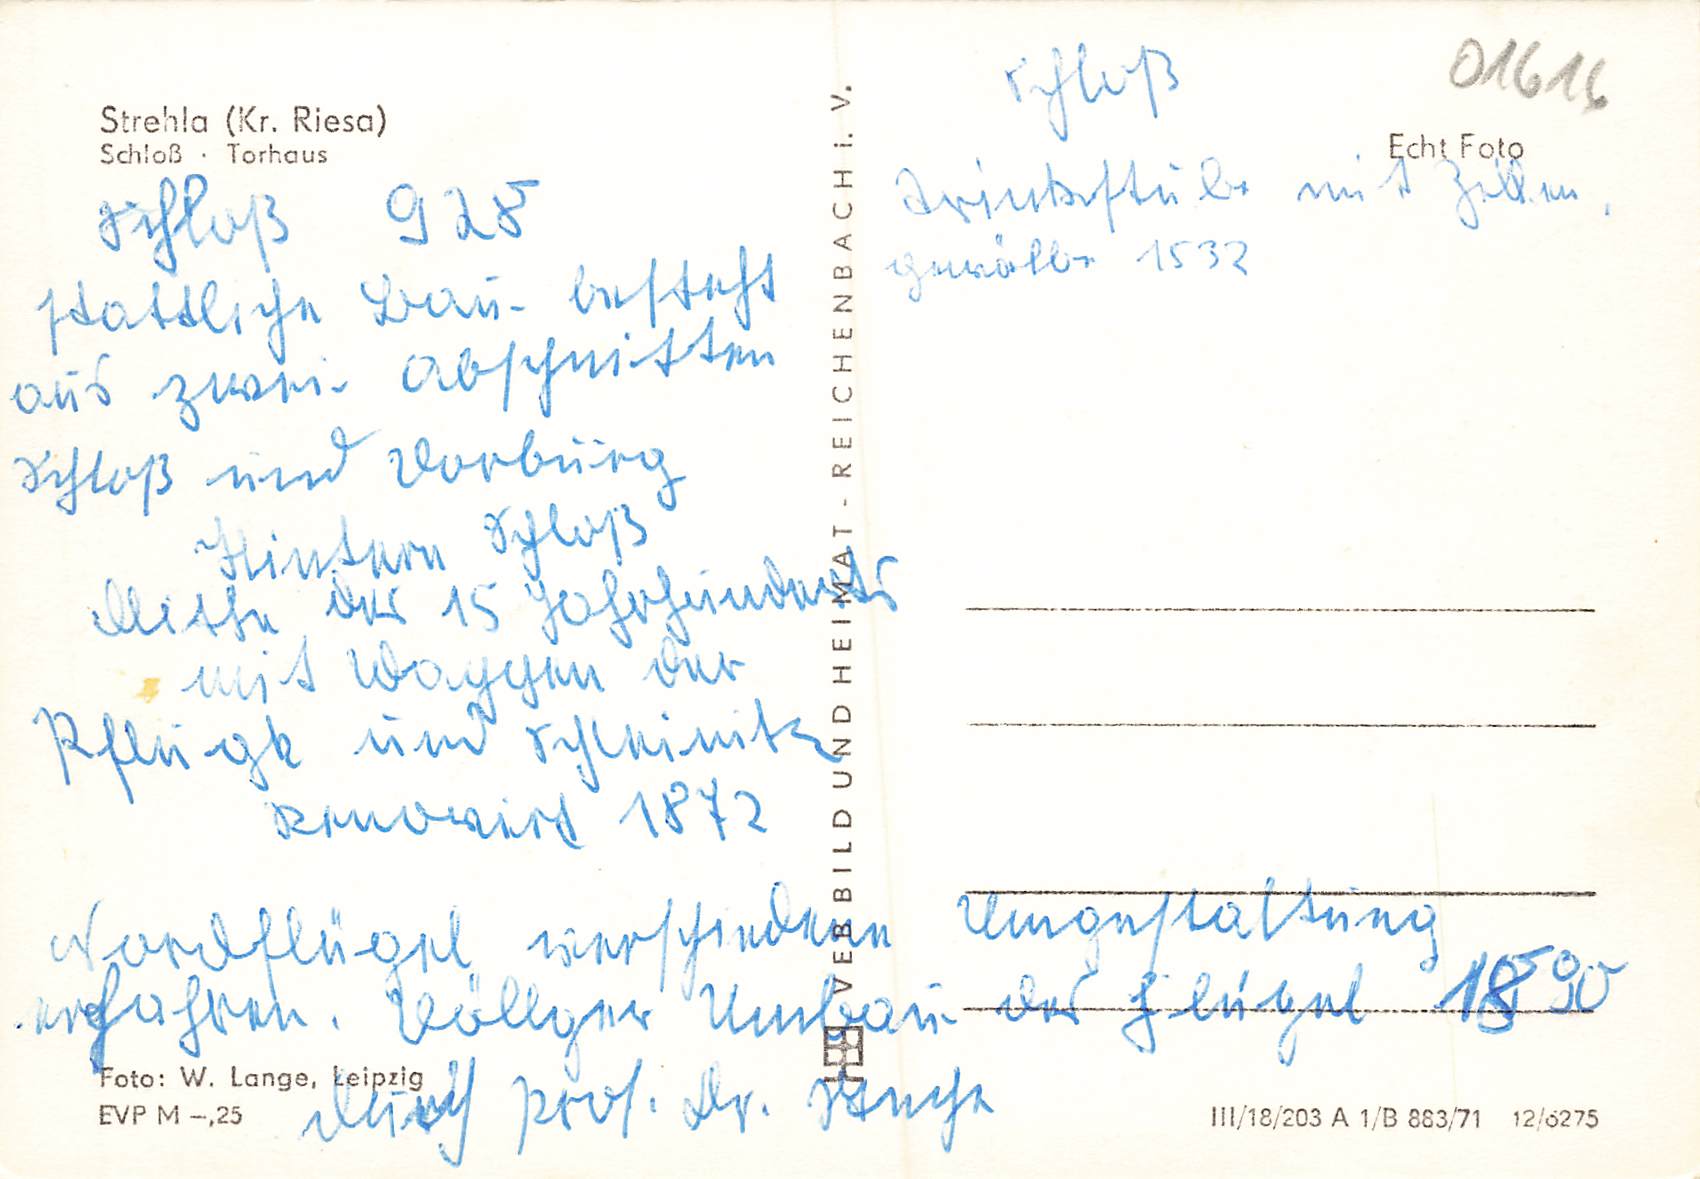 Strehla (Kr. Riesa)
Schloß · Torhaus
Schloß 928
stattliche Bau- besteht
aus zwei Abschnitten
Schloß und Vorburg
Hintern Schloß
Mitte des 15 Jahrhunderts
mit Wappen der
Pflugk und Schleinitz
renowiert 1872
Nordflügel verschiedene Umgestaltung
erfahren. Völlger Umbau des Flügel 1890
durch Prof. Dr.
Foto: W. Lange, Leipzig
EVP M –,25
VEB BILD UND HEIMAT - REICHENBACH i. V.
01616
Schloß
Echt Foto
Trinkstube mit Zellen,
gewölbe 1532
III/18/203 A 1/B 883/71 12/6275